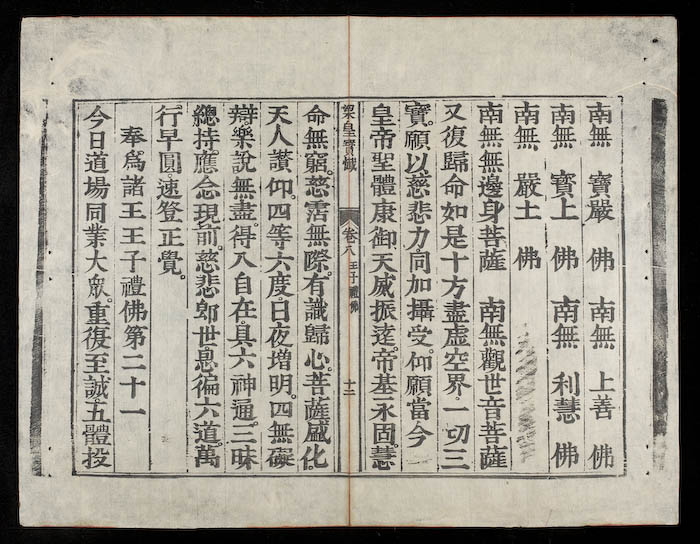 南無　寶嚴　佛　南無　上善　佛
南無　寶上　佛　南無　利慧　佛
南無　嚴土　佛
南無無邊身菩薩　南無觀世音菩薩
又復歸命如是十方盡虛空界。一切三
寶。願以慈悲力。同加攝受。仰願當今
皇帝聖體康御天威振遠。帝基永固。慧
梁皇寶懺　卷八　王子禮佛　十二
命無窮。慈霑無際。有識歸心。菩薩感化。
天人讚仰。四等六度。日夜增明。四無礙
辯。樂說無盡。得八自在。具六神通。三昧
總持。應念現前。慈悲郎世。息徧六道。萬
行早圓。速登正覺。
奉爲諸王王子禮佛第二十一
今日道場同業大眾。重復至誠。五體投